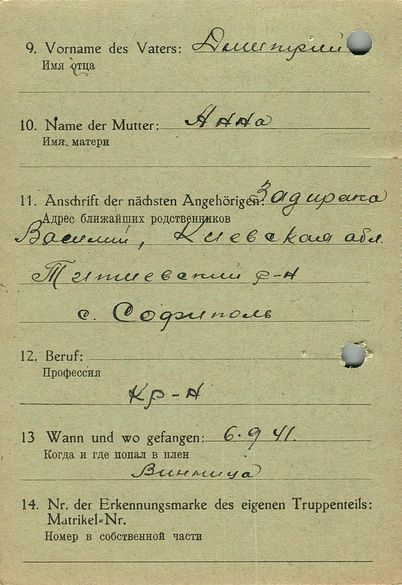 9. Vorname des Vaters: Дмитрий
Имя отца
10. Name der Mutter: Анна
Имя матери
11. Anschrift der nächsten Angehörigen: Задирака
Адрес ближайших родственников
Василий, Киевская обл.
Титиевский р-н
с. Софиполь
12. Beruf:
Профессия
Кр-н
13 Wann und wo gefangen: 6.9 41.
Когда и где попал в плен
Винница
14. Nr. der Erkennungsmarke des eigenen Truppenteils:
Matrikel-Nr.
Номер в собственной части